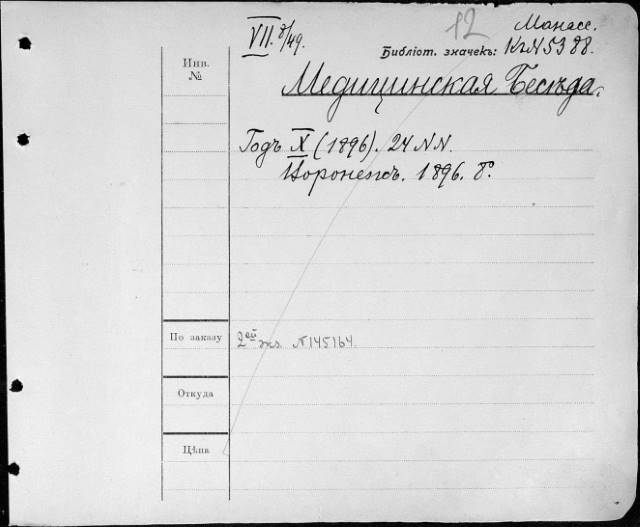 12
Манасс.
VII. 8/49.
Библіот. значекъ: КгN5388.
Инв.
№
Медицинская Бесѣда.
Годъ X (1896). 24 N.N.
Воронежъ. 1896. 8°.
По заказу
2ей экз. N145164.
Откуда
Цѣна